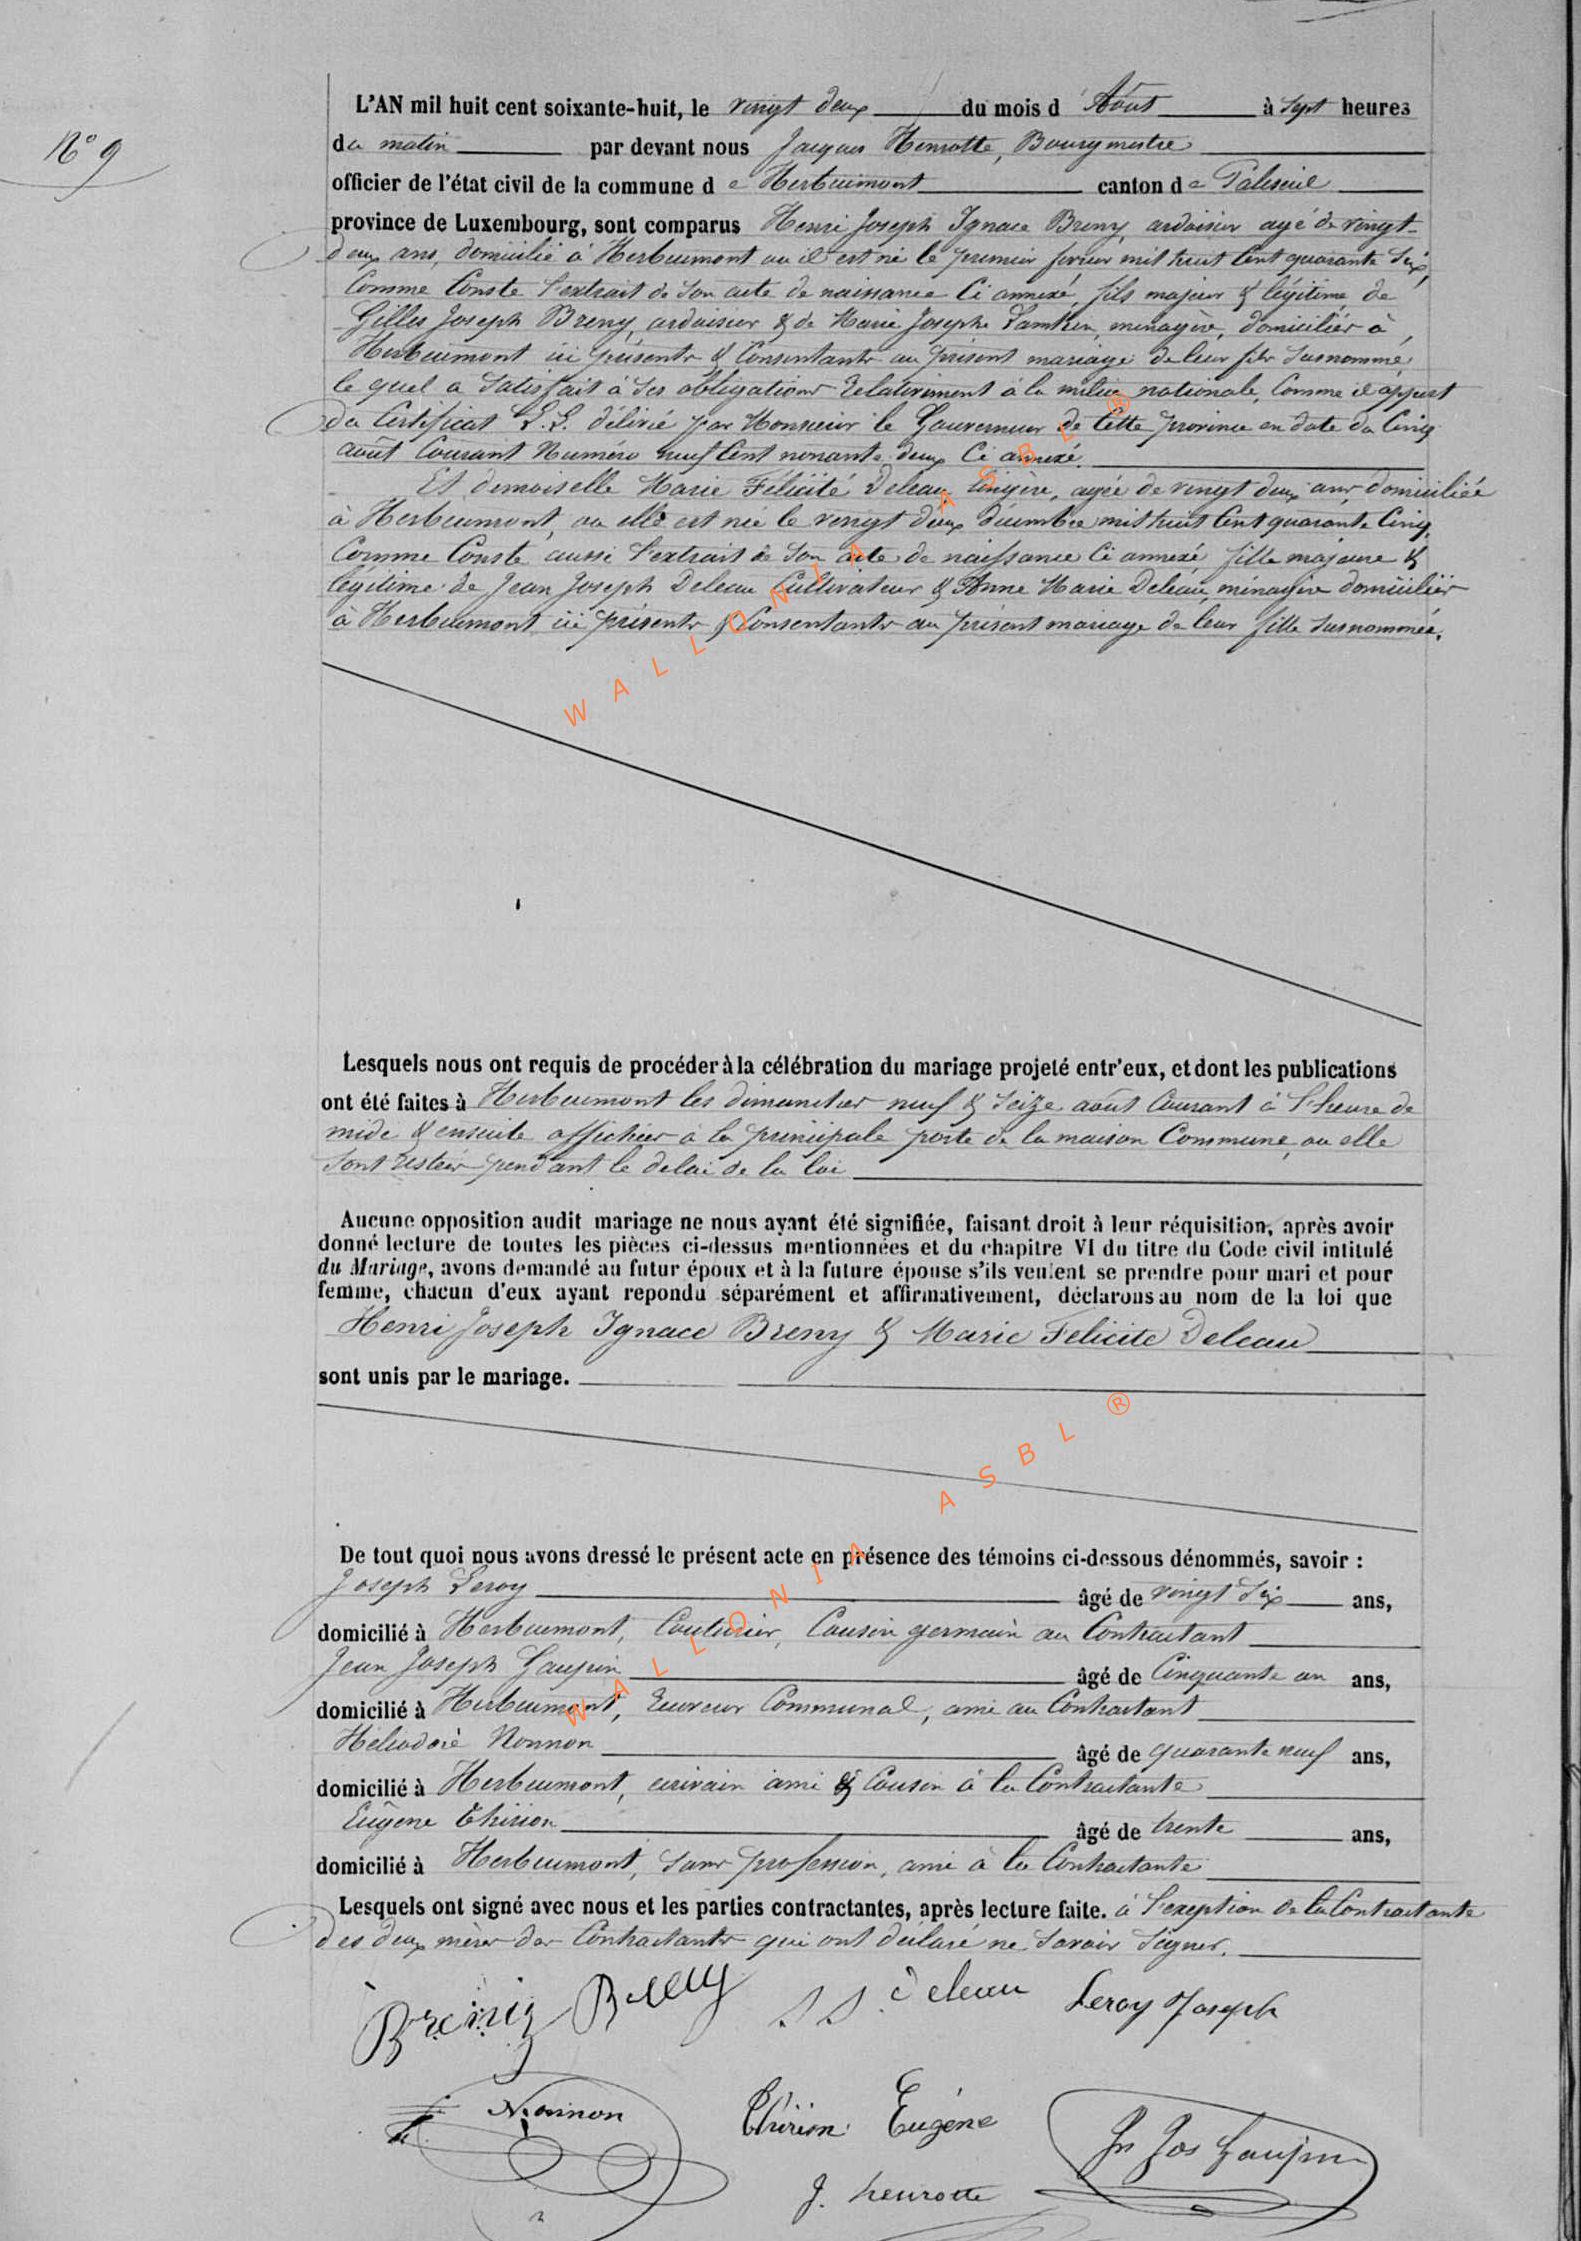 L'AN mil huit cent soixante-huit, le vingt deux du mois d'Août à sept heures
N° 9
du matin par devant nous Jacques Henrotte, Bourgmestre
officier de l'état civil de la commune de Herbeumont canton de Paliseul
province de Luxembourg, sont comparus Henri Joseph Ignace Breny, ardoisier agé de vingt-
deux ans, domicilié à Herbeumont ou il est né le premier fevrier mil huit Cent quarante Six,
Comme Conste l'extrait de Son acte de naissance Ci annexé, fils majeur & légitime de
Gilles Joseph Breny, ardoisier & de Marie Josephe Lamkin, ménagère, domiciliés à
Herbeumont ici présents & Consentants au présent mariage de leur fils Susnommé,
le quel a Satisfait à Ses obligations Relativement à la milice nationale, Comme il appert
du Certificat L.L. délivré par Monsieur le Gouverneur de Cette province en date du Cinq
août Courant Numéro neuf Cent nonante deux Ci annexé.
Et demoiselle Marie Félicité Deleau, lingère, agée de vingt deux ans, domiciliée
à Herbeumont, ou elle est née le vingt deux décembre mil huit Cent quarante Cinq,
Comme Conste aussi l'extrait de Son acte de naissance Ci annexé, fille majeure &
légitime de Jean Joseph Deleau Cultivateur & Anne Marie Deleau, ménagère domiciliés
à Herbeumont, ici présents & Consentants au présent mariage de leur fille Susnommée.
WALLONIA ASBL ®
Lesquels nous ont requis de procéder à la célébration du mariage projeté entr'eux, et dont les publications
ont été faites à Herbeumont les dimanches neuf & Seize août Courant à l'heure de
midi & ensuite affichées à la principale porte de la maison Commune, ou elle
Sont Restées pendant le delai de la loi
Aucune opposition audit mariage ne nous ayant été signifiée, faisant droit à leur réquisition, après avoir
donné lecture de toutes les pièces ci-dessus mentionnées et du chapitre VI du titre du Code civil intitulé
du Mariage, avons demandé au futur époux et à la future épouse s'ils veulent se prendre pour mari et pour
femme, chacun d'eux ayant repondu séparément et affirmativement, déclarons au nom de la loi que
Henri Joseph Ignace Breny & Marie Felicite Deleau
sont unis par le mariage.
WALLONIA ASBL ®
De tout quoi nous avons dressé le présent acte en présence des témoins ci-dessous dénommés, savoir :
Joseph Leroy âgé de vingt Six ans,
domicilié à Herbeumont, Couturier, Cousin germain au Contractant
Jean Joseph Gaupin âgé de Cinquante un ans,
domicilié à Herbeumont, Receveur Communal, ami au Contractant
Héliodore Nonnon âgé de quarante neuf ans,
domicilié à Herbeumont, écrivain ami & Cousin à la Contractante
Eugène Thirion âgé de trente ans,
domicilié à Herbeumont, Sans profession, ami à la Contractante
Lesquels ont signé avec nous et les parties contractantes, après lecture faite. à l'exeption de la Contractante
des deux mères des Contractants qui ont déclaré ne Savoir Signer.
Breny Breny J J Deleau Leroy Joseph
Nonnon Thirion Eugéne Jn Jos Gaupin
J. henrotte